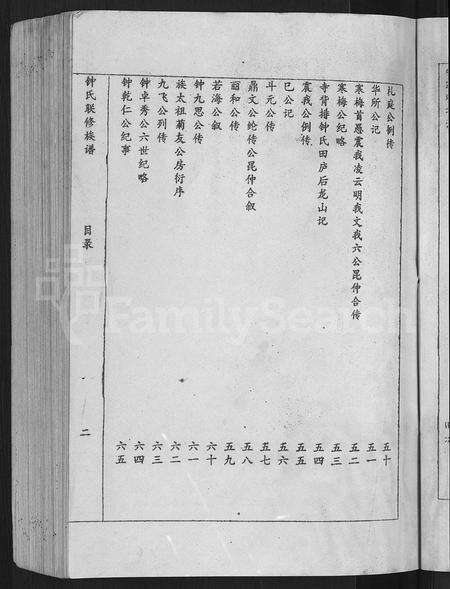 礼庭公例传 五十
华所公记 五一
寒梅首愿震我凌云明我文我六公昆仲合传 五二
寒梅公纪略 五三
寺背排钟氏田庐后龙山记 五四
震我公例传 五五
已公记 五六
斗元公传 五七
鼎文公纶传公昆仲合叙 五八
丽和公传 五九
若海公叙 六十
钟九思公传 六一
族太祖菊友公房衍序 六二
九飞公列传 六三
钟卓秀公六世纪略 六四
钟乾仁公纪事 六五
钟氏联修族谱 目录 二
FamilySearch